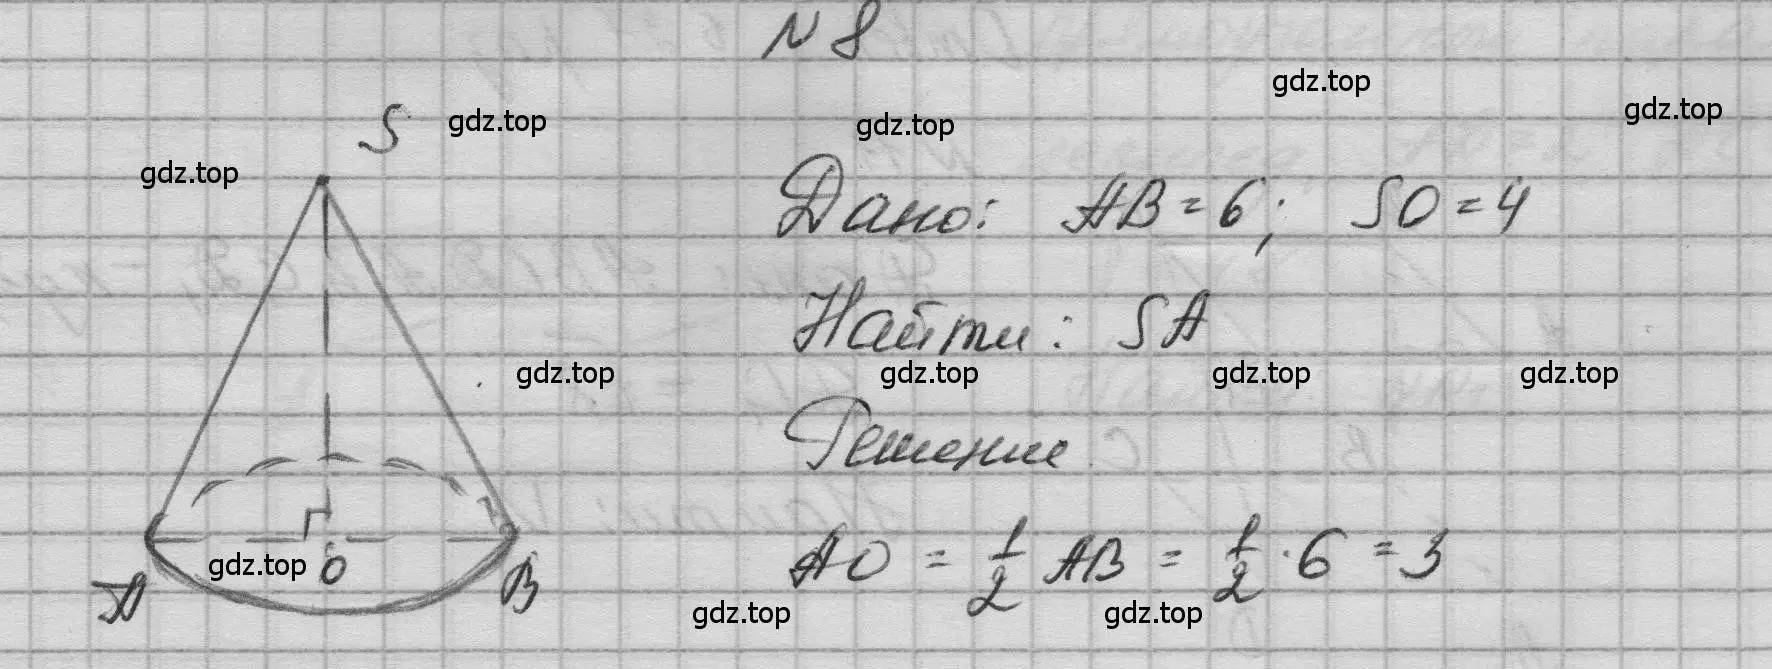 N 8
S
gdz.top
gdz.top
gdz.top
gdz.top
gdz.top
Дано: AB = 6; SO = 4
Найти: SA
gdz.top
gdz.top
gdz.top
gdz.top
Решение
AO = 1/2 AB = 1/2 · 6 = 3
A
gdz.top
O
B
gdz.top
gdz.top